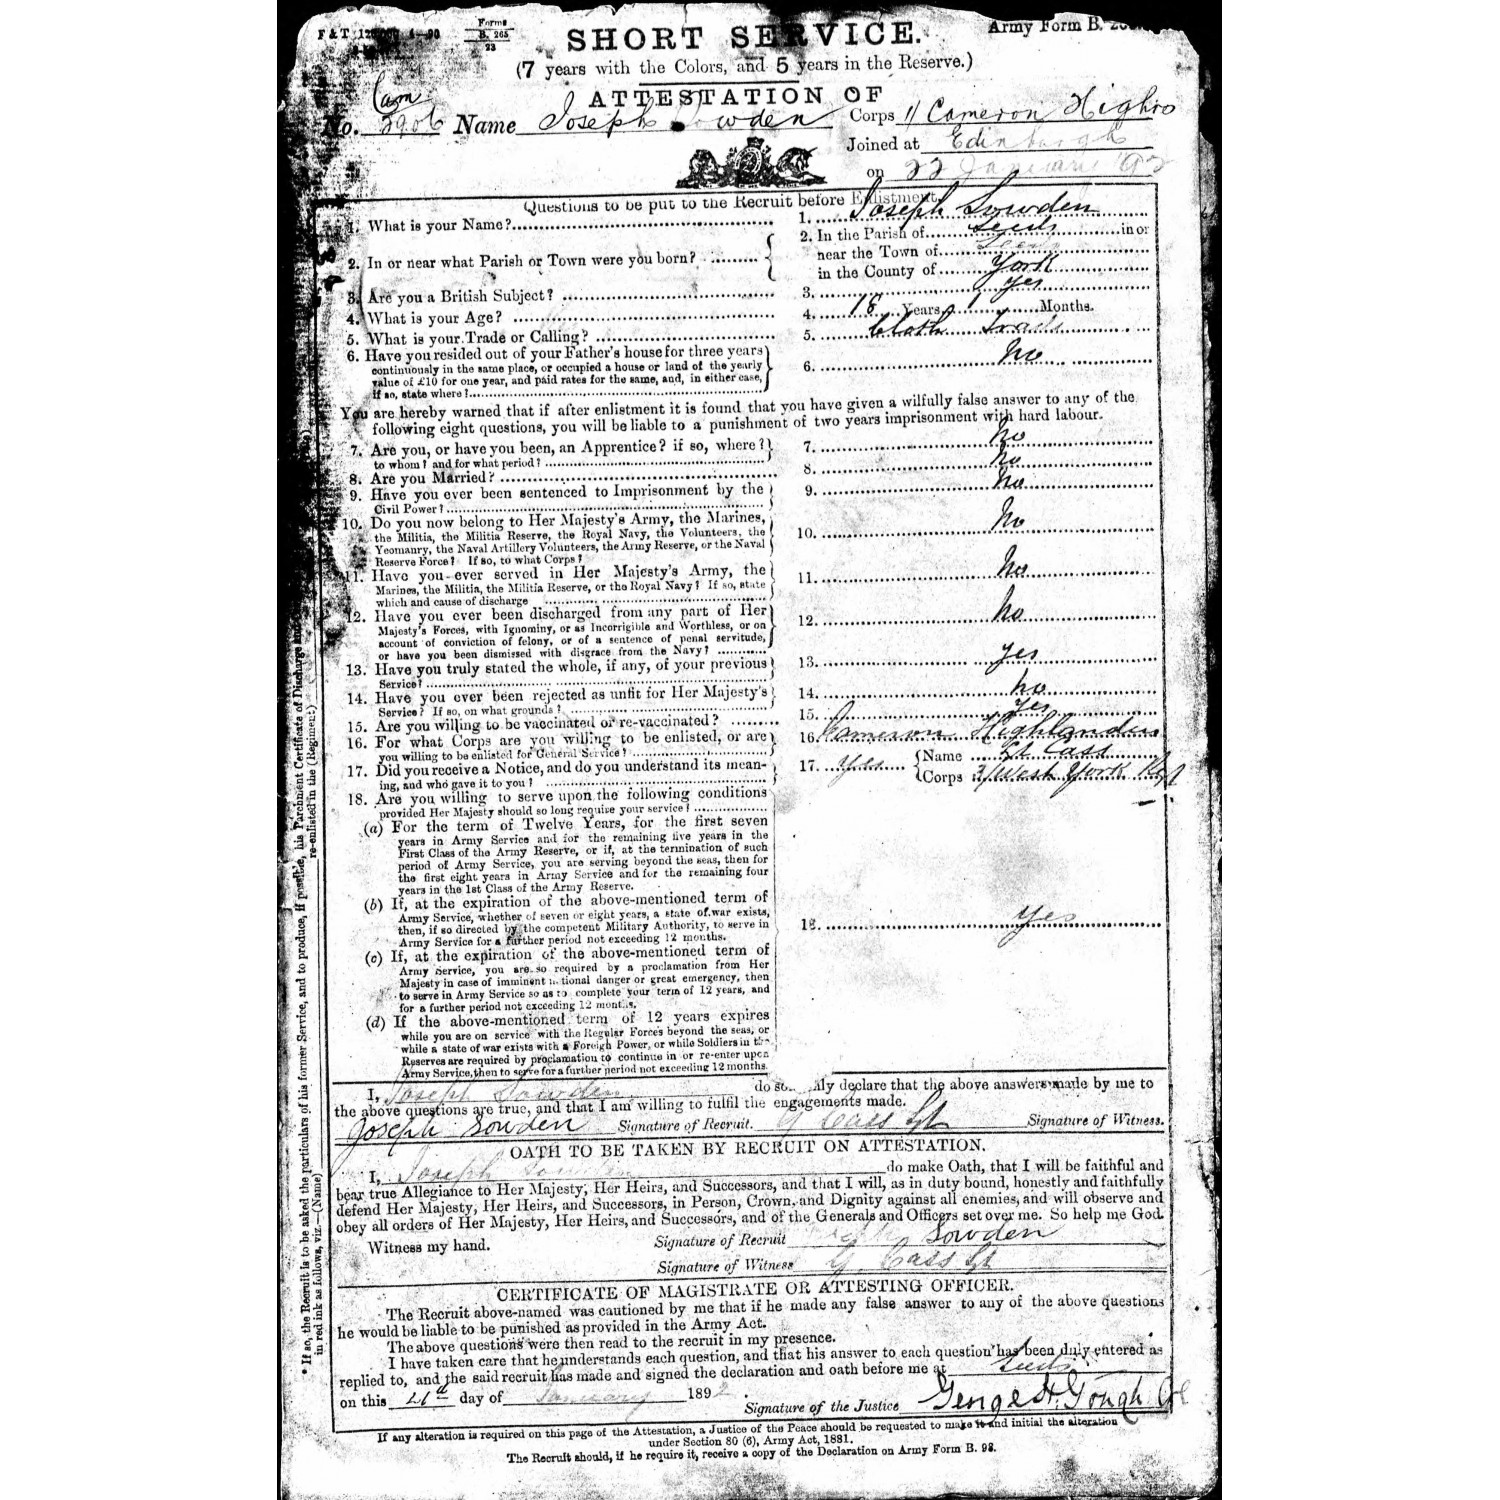 F & T 4—90
Forms
B. 265
23
SHORT SERVICE.
Army Form B.
(7 years with the Colors, and 5 years in the Reserve.)
ATTESTATION OF
Cam
No. 2906 Name Joseph Sowden Corps 1/ Cameron Highrs
Joined at Edinburgh
on 22 January 92
Questions to be put to the Recruit before Enlistment.
1. What is your Name? 1. Joseph Sowden
2. In or near what Parish or Town were you born? 2. In the Parish of Leeds in or
near the Town of Leeds
in the County of York
3. Are you a British Subject? 3. Yes
4. What is your Age? 4. 18 Years 1 Months.
5. What is your Trade or Calling? 5. Cloth Trade
6. Have you resided out of your Father's house for three years
continuously in the same place, or occupied a house or land of the yearly
value of £10 for one year, and paid rates for the same, and, in either case,
If so, state where? 6. No
You are hereby warned that if after enlistment it is found that you have given a wilfully false answer to any of the
following eight questions, you will be liable to a punishment of two years imprisonment with hard labour.
7. Are you, or have you been, an Apprentice? if so, where?
to whom? and for what period? 7. No
8. Are you Married? 8. No
9. Have you ever been sentenced to Imprisonment by the
Civil Power? 9. No
10. Do you now belong to Her Majesty's Army, the Marines,
the Militia, the Militia Reserve, the Royal Navy, the Volunteers, the
Yeomanry, the Naval Artillery Volunteers, the Army Reserve, or the Naval
Reserve Force? If so, to what Corps? 10. No
11. Have you ever served in Her Majesty's Army, the
Marines, the Militia, the Militia Reserve, or the Royal Navy? If so, state
which and cause of discharge 11. No
12. Have you ever been discharged from any part of Her
Majesty's Forces, with Ignominy, or as Incorrigible and Worthless, or on
account of conviction of felony, or of a sentence of penal servitude,
or have you been dismissed with disgrace from the Navy? 12. No
13. Have you truly stated the whole, if any, of your previous
Service? 13. Yes
14. Have you ever been rejected as unfit for Her Majesty's
Service? If so, on what grounds? 14. No
15. Are you willing to be vaccinated or re-vaccinated? 15. Yes
16. For what Corps are you willing to be enlisted, or are
you willing to be enlisted for General Service? 16. Cameron Highlanders
17. Did you receive a Notice, and do you understand its mean-
ing, and who gave it to you? 17. Yes Name Sgt Cass
Corps 3/West York Regt
18. Are you willing to serve upon the following conditions
provided Her Majesty should so long require your service?
(a) For the term of Twelve Years, for the first seven
years in Army Service and for the remaining five years in the
First Class of the Army Reserve, or if, at the termination of such
period of Army Service, you are serving beyond the seas, then for
the first eight years in Army Service and for the remaining four
years in the 1st Class of the Army Reserve.
(b) If, at the expiration of the above-mentioned term of
Army Service, whether of seven or eight years, a state of war exists,
then, if so directed by the competent Military Authority, to serve in
Army Service for a further period not exceeding 12 months.
18. Yes
(c) If, at the expiration of the above-mentioned term of
Army Service, you are so required by a proclamation from Her
Majesty in case of imminent national danger or great emergency, then
to serve in Army Service so as to complete your term of 12 years, and
for a further period not exceeding 12 months.
(d) If the above-mentioned term of 12 years expires
while you are on service with the Regular Forces beyond the seas, or
while a state of war exists with a Foreign Power, or while Soldiers in the
Reserves are required by proclamation to continue in or re-enter upon
Army Service, then to serve for a further period not exceeding 12 months.
I, Joseph Sowden do solemnly declare that the above answers made by me to
the above questions are true, and that I am willing to fulfil the engagements made.
Joseph Sowden Signature of Recruit. G Cass Sgt Signature of Witness.
OATH TO BE TAKEN BY RECRUIT ON ATTESTATION.
I, Joseph Sowden do make Oath, that I will be faithful and
bear true Allegiance to Her Majesty, Her Heirs, and Successors, and that I will, as in duty bound, honestly and faithfully
defend Her Majesty, Her Heirs, and Successors, in Person, Crown, and Dignity against all enemies, and will observe and
obey all orders of Her Majesty, Her Heirs, and Successors, and of the Generals and Officers set over me. So help me God.
Witness my hand. Signature of Recruit Joseph Sowden
Signature of Witness G. Cass Sgt
CERTIFICATE OF MAGISTRATE OR ATTESTING OFFICER.
The Recruit above-named was cautioned by me that if he made any false answer to any of the above questions
he would be liable to be punished as provided in the Army Act.
The above questions were then read to the recruit in my presence.
I have taken care that he understands each question, and that his answer to each question has been duly entered as
replied to, and the said recruit has made and signed the declaration and oath before me at Leeds
on this 21st day of January 1892.
Signature of the Justice George H. Gough Col
If any alteration is required on this page of the Attestation, a Justice of the Peace should be requested to make it and initial the alteration
under Section 80 (6), Army Act, 1881.
The Recruit should, if he require it, receive a copy of the Declaration on Army Form B. 98.
* If so, the Recruit is to be asked the particulars of his former Service, and to produce, if possible, his Parchment Certificate of Discharge
in red ink as follows, viz.—(Name) re-enlisted in the (Regiment)